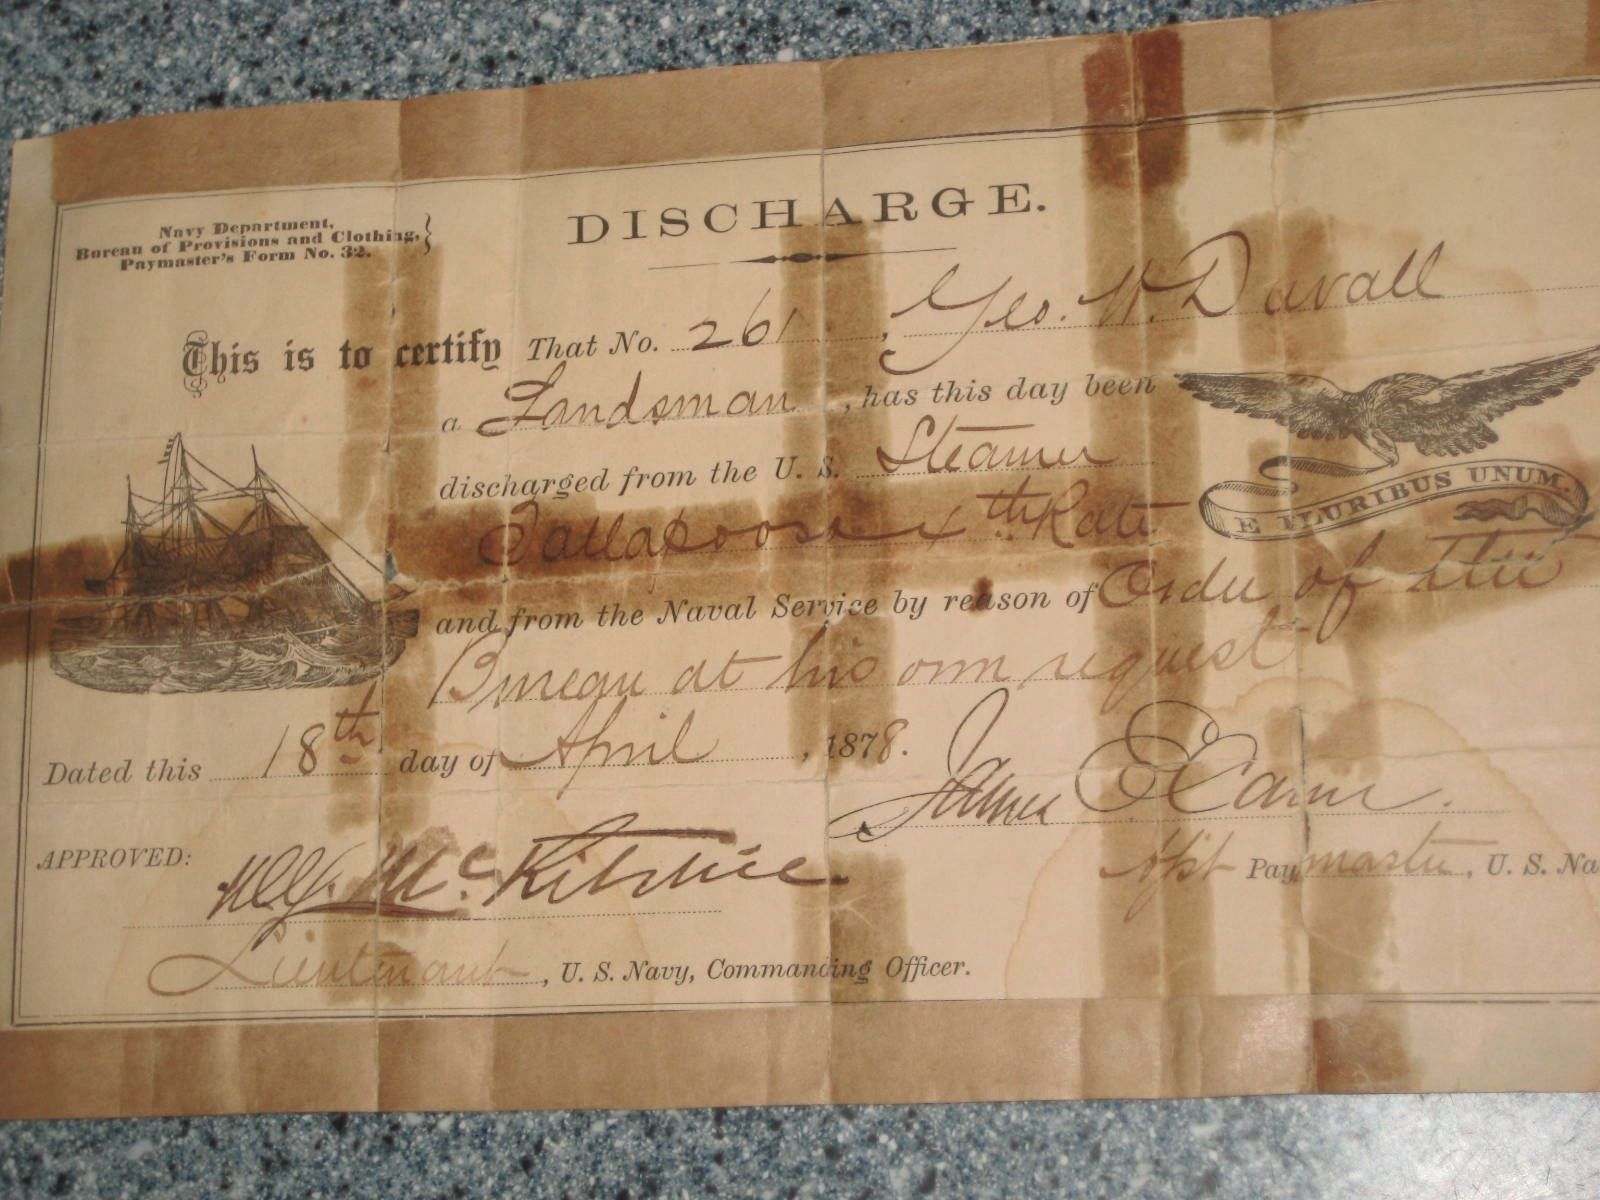 Navy Department,
Bureau of Provisions and Clothing,
Paymaster's Form No. 32.
DISCHARGE.
This is to certify That No. 261, Geo. W. Duvall
a Landsman, has this day been
discharged from the U. S. Steamer
Tallapoosa 4th Rate
E PLURIBUS UNUM.
and from the Naval Service by reason of Order of the
Bureau at his own request
Dated this 18th day of April, 1878.
James E Cann.
Asst Paymaster, U. S. Na
APPROVED:
McRitchie
Lieutenant, U. S. Navy, Commanding Officer.